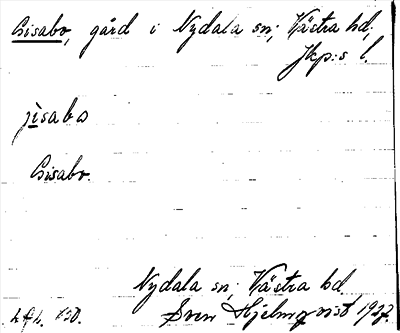 Gisabo, gård i Nydala sn; Västra hd;
Jkp:s l.
jisabo
Gisabo.
Nydala sn; Västra hd.
Sven Hjelmqvist 1927.